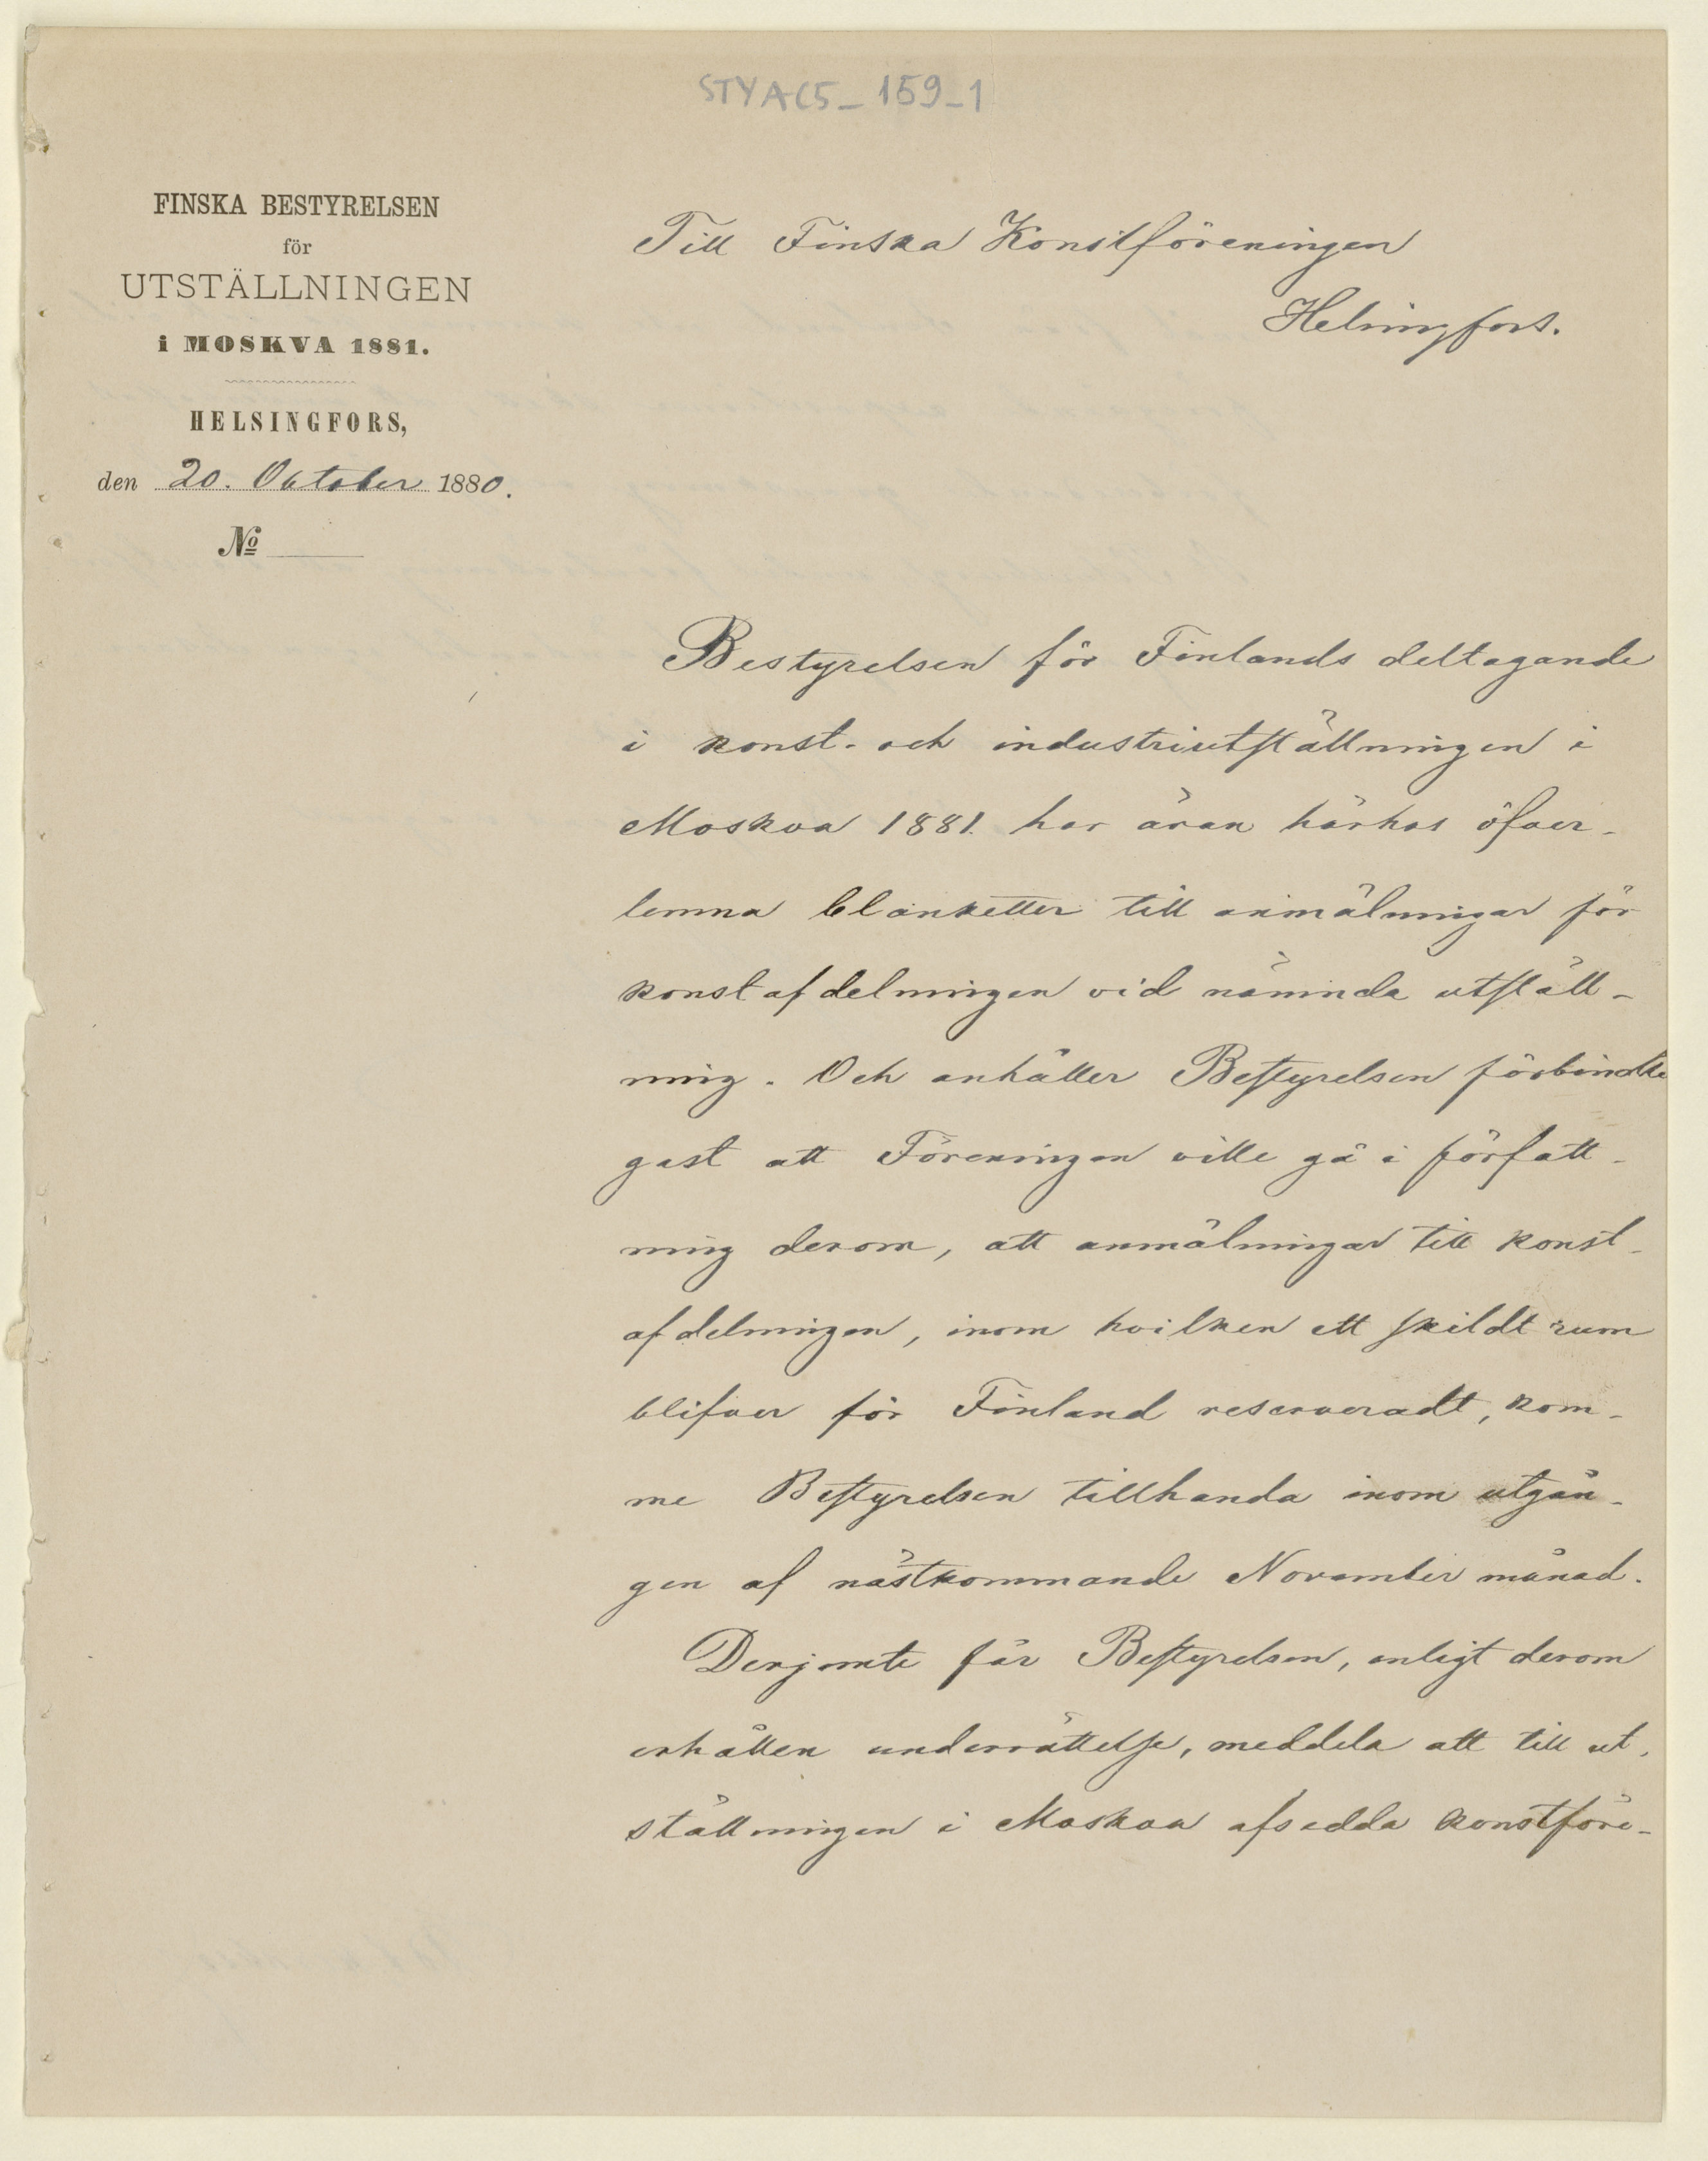 STYAC5_159_1
FINSKA BESTYRELSEN
för
UTSTÄLLNINGEN
i MOSKVA 1881.
HELSINGFORS,
den 20. Oktober 1880.
No
Till Finska Konstföreningen
Helsingfors.
Bestyrelsen för Finlands deltagande
i konst- och industriutställningen i
Moskva 1881. har äran härhos öfver-
lemna blanketter till anmälningar för
konstafdelningen vid nämnda utställ-
ning. Och anhåller Bestyrelsen förbindli
gast att Föreningen ville gå i författ-
ning derom, att anmälningar till konst-
afdelningen, inom hvilken ett skildt rum
blifver för Finland reserveradt, kom-
me Bestyrelsen tillhanda inom utgån-
gen af nästkommande November månad.
Derjemte får Bestyrelsen, enligt derom
erhållen underrättelse, meddela att till ut-
ställningen i Moskva afsedda konstföre-